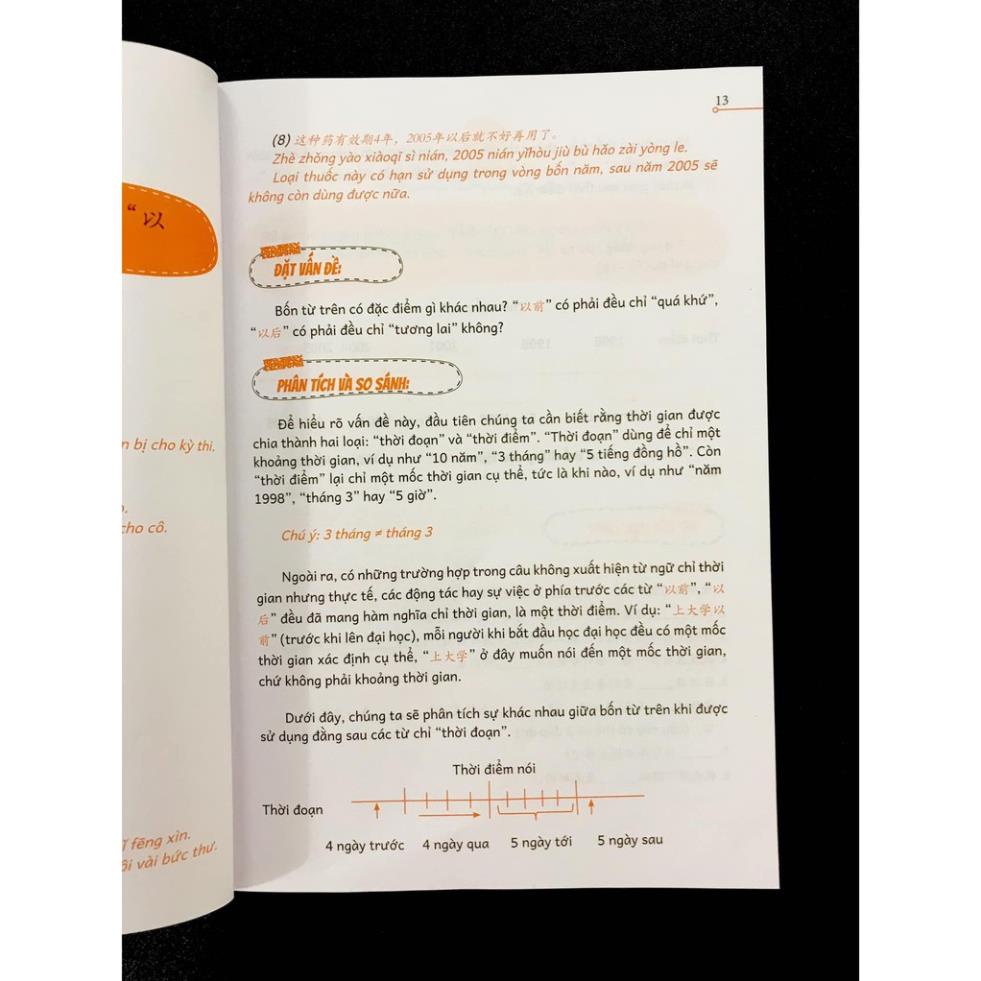 “以
n bị cho kỳ thi.
cho cô.
fēng xìn.
vài bức thư.
13
(8) 这种药有效期4年，2005年以后就不好再用了。
Zhè zhǒng yào xiàoqī sì nián, 2005 nián yǐhòu jiù bù hǎo zài yòng le.
Loại thuốc này có hạn sử dụng trong vòng bốn năm, sau năm 2005 sẽ
không còn dùng được nữa.
ĐẶT VẤN ĐỀ:
Bốn từ trên có đặc điểm gì khác nhau? “以前” có phải đều chỉ “quá khứ”,
“以后” có phải đều chỉ “tương lai” không?
PHÂN TÍCH VÀ SO SÁNH:
Để hiểu rõ vấn đề này, đầu tiên chúng ta cần biết rằng thời gian được
chia thành hai loại: “thời đoạn” và “thời điểm”. “Thời đoạn” dùng để chỉ một
khoảng thời gian, ví dụ như “10 năm”, “3 tháng” hay “5 tiếng đồng hồ”. Còn
“thời điểm” lại chỉ một mốc thời gian cụ thể, tức là khi nào, ví dụ như “năm
1998”, “tháng 3” hay “5 giờ”.
Chú ý: 3 tháng ≠ tháng 3
Ngoài ra, có những trường hợp trong câu không xuất hiện từ ngữ chỉ thời
gian nhưng thực tế, các động tác hay sự việc ở phía trước các từ “以前”, “以
后” đều đã mang hàm nghĩa chỉ thời gian, là một thời điểm. Ví dụ: “上大学以
前” (trước khi lên đại học), mỗi người khi bắt đầu học đại học đều có một mốc
thời gian xác định cụ thể, “上大学” ở đây muốn nói đến một mốc thời gian,
chứ không phải khoảng thời gian.
Dưới đây, chúng ta sẽ phân tích sự khác nhau giữa bốn từ trên khi được
sử dụng đằng sau các từ chỉ “thời đoạn”.
Thời điểm nói
Thời đoạn
4 ngày trước 4 ngày qua 5 ngày tới 5 ngày sau